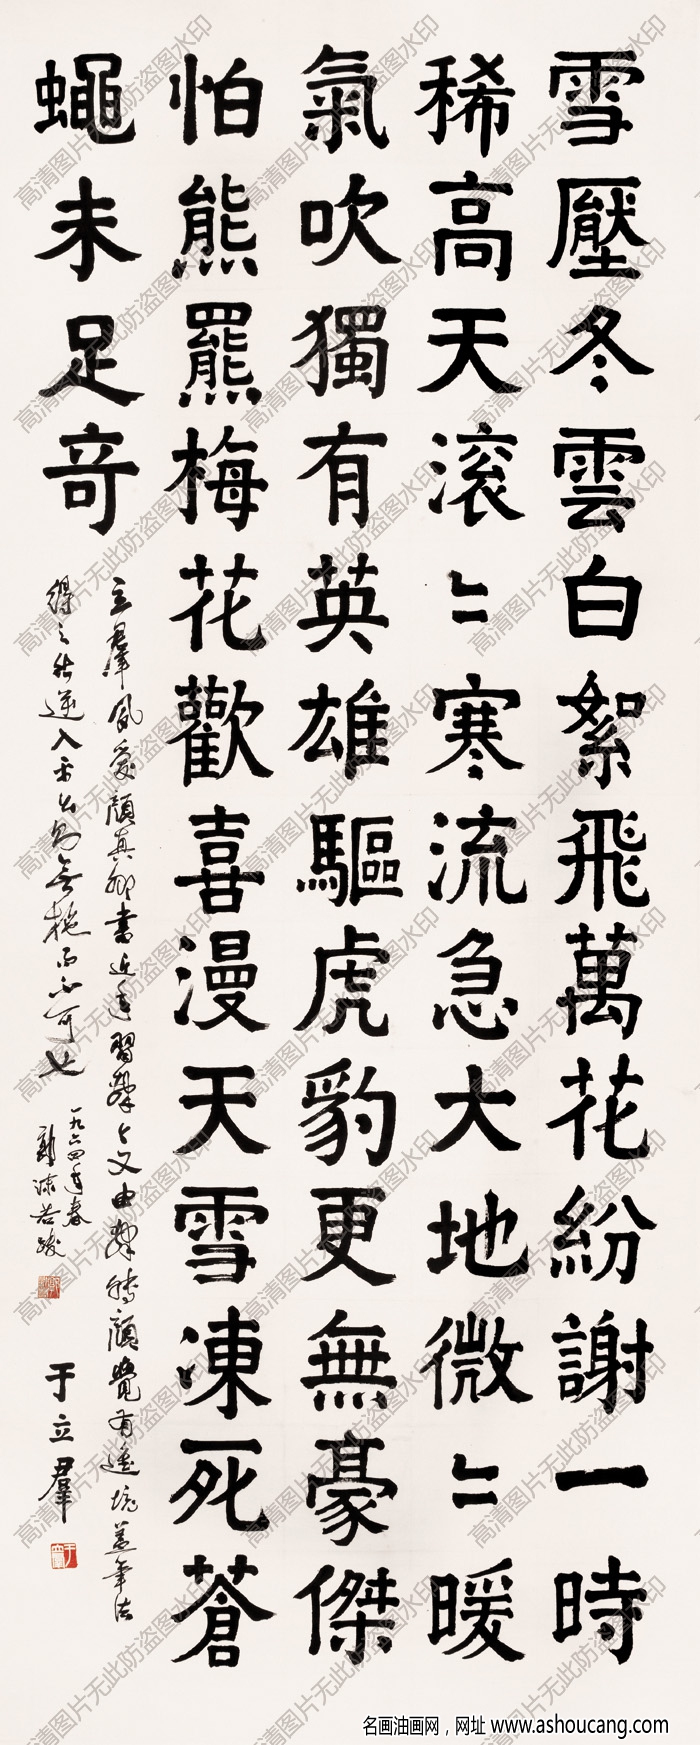 雪壓冬雲白絮飛萬花紛謝一時
稀高天滚〻寒流急大地微〻暖
氣吹獨有英雄驅虎豹更無豪傑
怕熊羆梅花歡喜漫天雪凍死蒼
蠅未足奇
立羣夙爱顔真卿書近年習
顔覺有進境蓋筆法
入
不可也
一九六四年春
郭沫若跋
于立羣
名画油画网，网址 www.ashoucang.com
高清图片无此防盗图水印